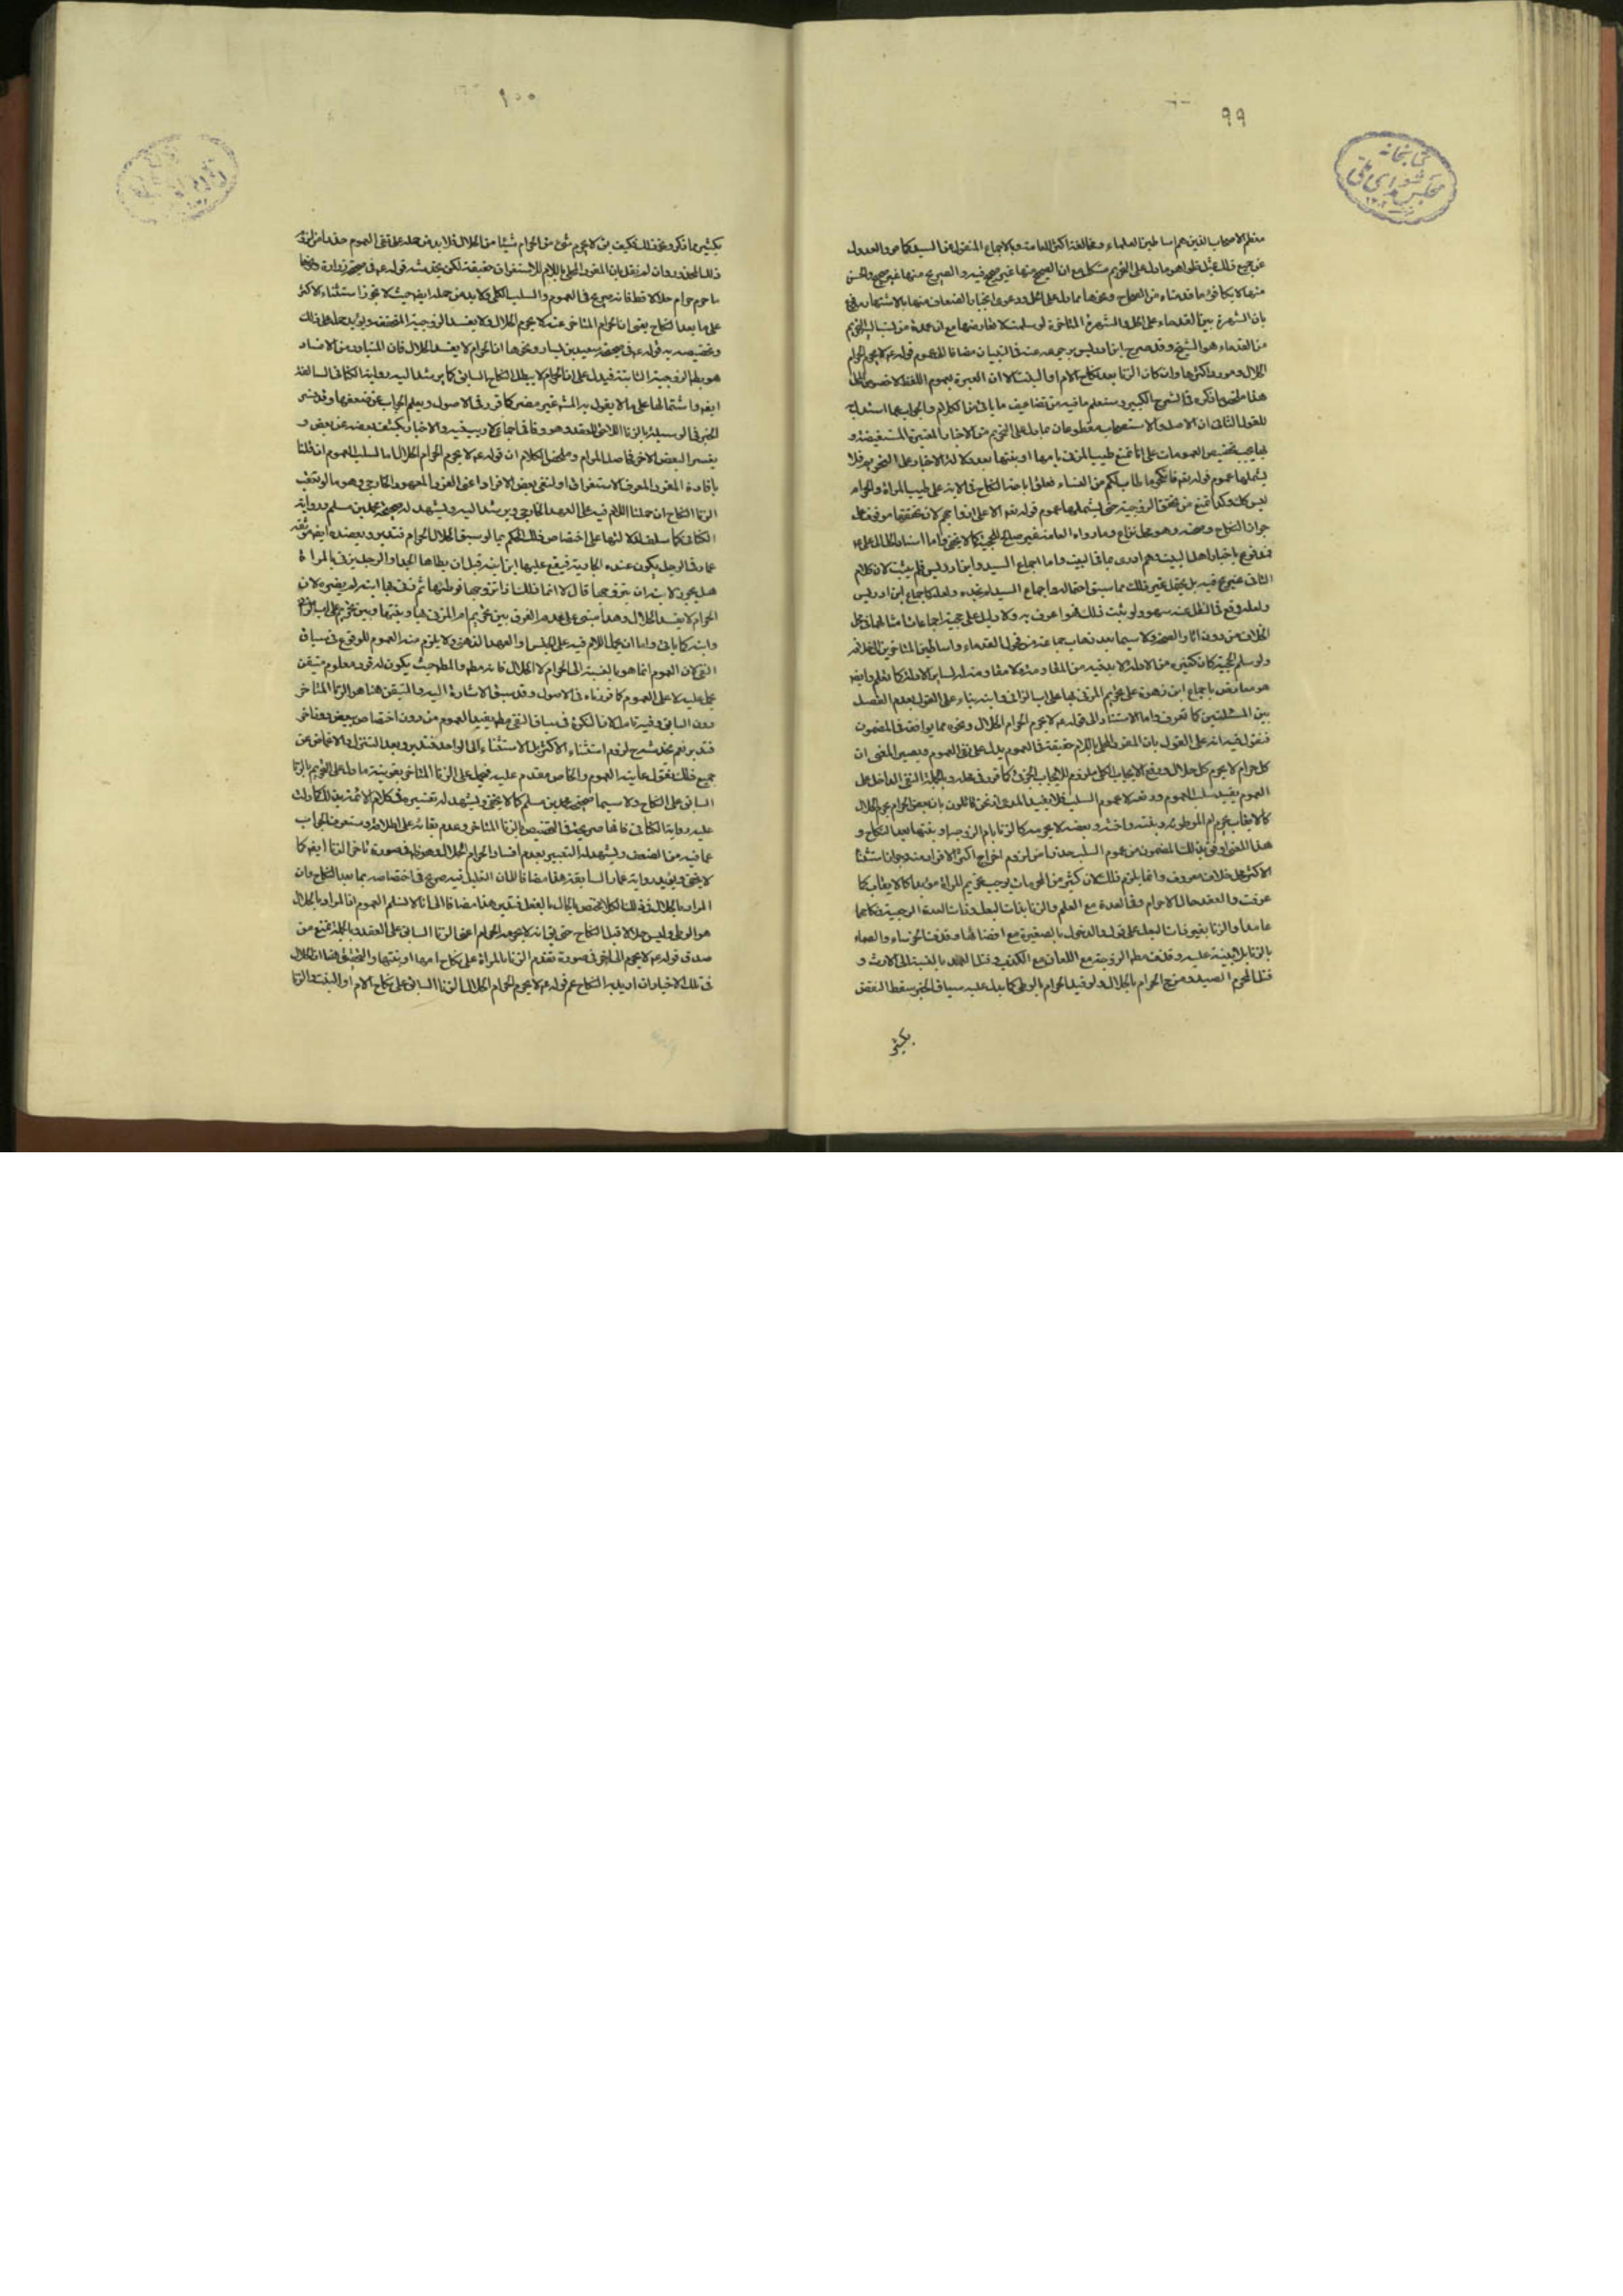 ٩٩
كتابخانه مجلس شورای ملی
معظم الاصحاب الذين هم اساطين العلماء ومخالفة اكثر العامة وبالاجماع المنقول عن السيد كما مر والعدول
عن جميع ذلك بمثل ظواهر ما دل على التحريم مشكل مع ان الصحيح منها غير صريح فيه والصريح منها غير صحيح والحسن
منها لا يكافؤ ما قدمناه من الصحاح ونحوها مما دل على الحل ودعوى انجبار الضعاف منها بالاشتهار
بان الشهرة بين القدماء على الحل والشهرة المتأخرة لو سلمت لا تعارضها مع ان عمدة من نسب اليه التحريم
من القدماء هو الشيخ وقد صرح ابن ادريس برجوعه عنه في التبيان مضافا الى عموم قوله ع لا يحرم الحرام
الحلال ومورد اكثرها وان كان الزنا بعد نكاح الام او البنت الا ان العبرة بعموم اللفظ لا خصوص المحل
هذا ملخص ما ذكره في الشرح الكبير وستعلم ما فيه من تضاعيف ما ياتى من الكلام والجواب عما استدل به
للقول الثانى ان الاصل والاستصحاب مقطوعان مما دل على التحريم من الاخبار المعتبرة المستفيضة و
بها يجب تخصيص العمومات على انا نمنع طيب المزنى بامها او بنتها بعد دلالة الاخبار على التحريم فلا
يشملها عموم قوله تعالى فانكحوا ما طاب لكم من النساء فعلق اباحة النكاح في الاية على طيب المراة والحرام
ليس كك وكذا نمنع من تحقق الزوجية حتى يشملها عموم قوله تعالى الا على ازواجهم لان تحققها موقوف على
جواز النكاح وصحته وهو محل نزاع وما رواه العامة غير صالح للحجية كما لا يخفى واما
فمدفوع باخبار اهل البيت وهم ادرى بما في البيت واما اجماع السيد وابن ادريس فلم يثبت لان كلام
الثانى غير صريح فيه بل يحتمل غير ذلك مما سبق احتماله واجماع السيد لم نجده ولعله كاجماع ابن ادريس
ولعله وقع في النقل عنه سهو ولو ثبت ذلك فهو اعرف به ولا دليل على حجية اجماعات امثالهما في محل
الخلاف من دون اثار الصحة ولا سيما بعد ذهاب جماعة من فحول القدماء واساطين المتاخرين الى خلافه
ولو سلم الحجية كان كغيره من الادلة لا بد فيه من المقاومة ولا مقاومة له لسائر الادلة كما تعلم وايضا
هو معارض باجماع ابن زهرة على تحريم المزنى بها على اب الزانى وابنه بناء على القول بعدم الفصل
بين المسئلتين كما تعرف واما الاستناد الى قوله ع لا يحرم الحرام الحلال ونحوه مما يوافقه في المضمون
فنقول فيه انه على القول بان المفرد المحلى باللام حقيقة في العموم يدل على نفى العموم ويصير المعنى ان
كل حرام لا يحرم كل حلال ورفع الايجاب الكلى ملزوم للايجاب الجزئى كما قرر في محله وبالجملة النفى الداخل على
العموم يفيد سلب العموم ورفعه لا عموم السلب فلا يفيد المدعى اذ نحن قائلون بان بعض الحرام يحرم الحلال
كالايقاب يحرم ام الموطوء وبنته واخته وبعضه لا يحرمه كالزنا بام الزوجة او بنتها بعد النكاح و
هذا المعنى اوفق بذلك المضمون من عموم السلب حذرا من لزوم اخراج اكثر الافراد منه وجواز استثناء
الاكثر محل خلاف معروف وانما يلزم ذلك لان كثيرا من المحرمات يوجب تحريم المراة مؤبدا كالايقاب كما
عرفت والعقد حال الاحرام وفي العدة مع العلم والزنا بذات البعل وذات العدة الرجعية ونكاحهما
عامدا والزنا بغير ذات البعل على قول والدخول بالصغيرة مع افضائها وقذف الخرساء والصماء
بالزنا بلا بينة عليه وقذف مطلق الزوجة مع اللعان مع الكذب وقتل العمد بالنسبة الى الارث و
قتل المحرم الصيد ومزج الحرام بالحلال ولو قيد الحرام بالوطى كما يدل عليه سياق الخبر سقط النقض
بكثير
١٠٠
بكثير مما ذكر ومع ذلك فكيف يق لا يحرم شئ من الحرام شيئا من الحلال فلا بد من حمله على نفى العموم حذرا من لزوم
ذلك المحذور وان لم نقل بان المفرد المحلى باللام للاستغراق حقيقة لكن يخدشه قوله ع في صحيحة زرارة ونحوها
ما حرم حرام حلالا قط فانه صريح في العموم والسلب الكلى ولا بد من حمله ايضا حيث لا يجوز استثناء الاكثر
على ما بعد النكاح يعنى ان الحرام المتاخر عنه لا يحرم الحلال ولا يفسد الزوجية المتحققة ويؤيد حمله على ذلك
وتخصيصه به قوله ع في صحيحة سعيد بن يسار ونحوها ان الحرام لا يفسد الحلال فان المتبادر من الافساد
هو بطلان الزوجية الثابتة فيدل على ان الحرام لا يبطل النكاح السابق كما يرشد اليه رواية الكنانى السالفة
ايضا واشتمالها على ما لا يقول به المشهور غير مضر كما قرر في الاصول ويعلم الجواب عن ضعفها وقد فسر
الخبر في الوسيلة بالزنا اللاحق للعقد وهو وفاقا اجماعى لا ريب فيه والاخبار يكشف بعضه عن بعض و
يفسر البعض الاخر فاصل المرام وملخص الكلام ان قوله ع لا يحرم الحرام الحلال اما السلب العموم ان قلنا
بافادة المفرد المعرف الاستغراق او لنفى بعض الافراد اعنى الفرد المعهود الخارجى وهو ما لو تعقب
الزنا النكاح ان حملنا اللام فيه على العهد الخارجى ويرشد اليه ويشهد له صحيحة محمد بن مسلم ورواية
الكنانى كما سلف لدلالتها على اختصاص ذلك الحكم بما لو سبق الحلال الحرام فتدبر ويعضده ايضا موثقة
عمار في الرجل يكون عنده الجارية فيقع عليها ابن ابنه قبل ان يطاها الجد او الرجل يزنى بالمراة
هل يجوز لابنه ان يتزوجها قال لا انما ذلك اذا تزوجها فوطئها ثم زنى بها ابنه لم يضره لان
الحرام لا يفسد الحلال وهذا مبنى على عدم الفرق بين تحريم ام المزنى بها وبنتها وبين تحريم على اب الزانى
وابنه كما ياتى واما ان يحمل اللام فيه على الجنس او العهد الذهنى ولا يلزم منه العموم للوقوع في سياق
النفى لان العموم انما هو بالنسبة الى الحرام لا الحلال فانه مطلق والمطلق حيث يكون له فرد معلوم متيقن
يحمل عليه لا على العموم كما قررناه في الاصول وقد سبق الاشارة اليه والمتيقن هنا هو الزنا المتاخر
دون السابق وفيه تامل لان النكرة في سياق النفى مطلقا يفيد العموم من دون اختصاص ببعض دون اخر
فتدبر نعم يخدشه لزوم استثناء الاكثر بل الاستثناء الى الواحد فتدبر وبعد التنزل والاغماض عن
جميع ذلك نقول غايته العموم والخاص مقدم عليه فيحمل على الزنا المتاخر بقرينة ما دل على التحريم بالزنا
السابق على النكاح ولا سيما صحيحة محمد بن مسلم كما لا يخفى ويشهد له تفسيره في كلام الائمة بذلك كما دلت
عليه رواية الكنانى فانها صريحة في التخصيص بالزنا المتاخر وعدم بقائه على اطلاقه وستعرف الجواب
عما فيه من الضعف ويشهد له التعبير بعدم افساد الحرام الحلال وهو ظاهر في صورة تاخر الزنا ايضا كما
لا يخفى ويؤيده رواية عمار السابقة هذا مضافا الى ان التعليل فيه صريح في اختصاصه بما بعد النكاح وان
المراد بالحلال في ذلك الكلام المختص بالحال بالفعل فتدبر هذا مضافا الى انا لا نسلم العموم اذ المراد بالحلال
هو الوطى وليس حلالا قبل النكاح حتى يق انه لا يحرمه الحرام اعنى الزنا السابق على العقد وبالجملة نمنع من
صدق قوله ع لا يحرم الحرام في صورة تقدم الزنا بالمراة على نكاح امها او بنتها والتحقيق هنا ان الحلال
في تلك الاخبار ان اريد به النكاح عم قوله ع لا يحرم الحرام الحلال الزنا السابق على نكاح الام او البنت والزنا